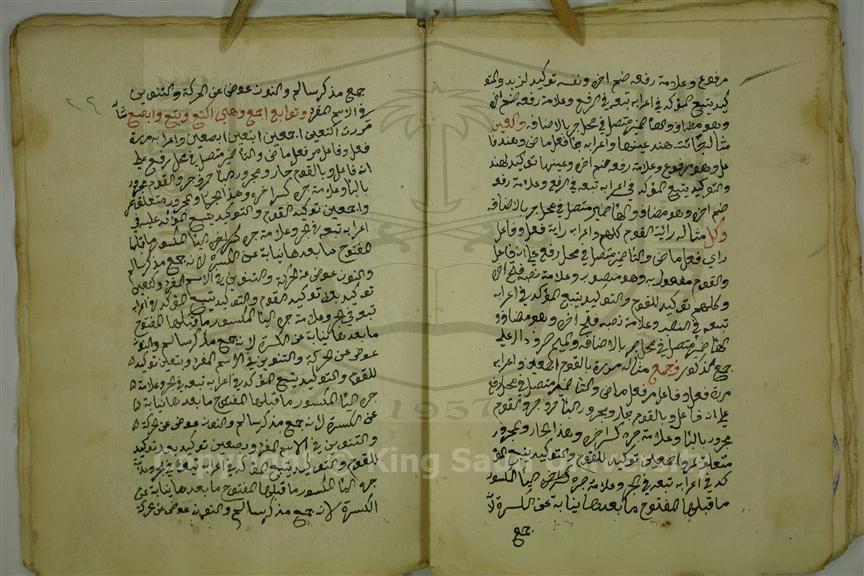 مرفوع وعلامة رفعه ضم اخره ونفسه توكيد لزيد والتو
كيد يتبع المؤكد في اعرابه تبعه في الرفع وعلامة رفعه ضم اخره
وهو مضاف والها ضمير متصل في محل جر بالاضافه والعين
مثاله جائت هند عينها واعرابه جا فعل ماض وهند فا
عل وهو مرفوع وعلامة رفعه ضم اخره وعينها توكيد لهند
والتوكيد يتبع المؤكد في اعرابه تبعه في الرفع وعلامة رفعه
ضم اخره وهو مضاف والها ضمير متصل في محل جر بالاضافه
وكل مثاله رايت القوم كلهم واعرابه رايت فعل وفاعل
راي فعل ماض والتا ضمير متصل في محل رفع على انه فاعل
والقوم مفعول به وهو منصوب وعلامة نصبه فتح اخره
وكلهم توكيد للقوم والتوكيد يتبع المؤكد في اعرابه
تبعه في النصب وعلامة نصبه فتح اخره وهو مضاف و
الها ضمير متصل في محل جر بالاضافه والميم حرف دال على
جمع الذكور واجمع مثاله مررت بالقوم اجمعين واعرابه
مررت فعل وفاعل مر فعل ماض والتا ضمير متصل في محل رفع
على انه فاعل وبالقوم جار ومجرور البا حرف جر والقوم
مجرور بالبا وعلامة جره كسر اخره وهذا الجار والمجرور
متعلق بمر واجمعين توكيد للقوم والتوكيد يتبع المؤ
كد في اعرابه تبعه في الجر وعلامة جره اليا المكسور
ما قبلها المفتوح ما بعدها نيابة عن الكسرة لانه
جمع
جمع مذكر سالم والنون عوض عن الحركة والتنوين
في الاسم المفرد وتوابع اجمع وهي اكتع وابتع وابصع مثاله
مررت اجمعين ابتعين ابصعين واعرابه مررت
فعل وفاعل مر فعل ماض والتا ضمير متصل في محل رفع على
انه فاعل وبالقوم جار ومجرور البا حرف جر والقوم مجرور
بالبا وعلامة جره كسر اخره وهذا الجار والمجرور متعلق بمر
واجمعين توكيد للقوم والتوكيد يتبع المؤكد في
اعرابه تبعه في الجر وعلامة جره اليا المكسور ما قبلها
المفتوح ما بعدها نيابة عن الكسرة لانه جمع مذكر سالم
والنون عوض عن الحركة والتنوين في الاسم المفرد
توكيد بعد توكيد للقوم والتوكيد يتبع المؤكد في اعرابه
تبعه في الجر وعلامة جره اليا المكسور ما قبلها المفتوح
ما بعدها نيابة عن الكسرة لانه جمع مذكر سالم والنون
عوض عن الحركة والتنوين في الاسم المفرد وابتعين توكيد
للقوم والتوكيد يتبع المؤكد في اعرابه تبعه في الجر وعلامة
جره اليا المكسور ما قبلها المفتوح ما بعدها نيابة
عن الكسرة لانه جمع مذكر سالم والنون عوض عن الحركة
والتنوين في الاسم المفرد وابصعين توكيد بعد توكيد
للقوم والتوكيد يتبع المؤكد في اعرابه تبعه في الجر وعلامة
جره اليا المكسور ما قبلها المفتوح ما بعدها نيابة عن
الكسرة لانه جمع مذكر سالم والنون عوض عن حركة
1957
Copyright © King Saud University